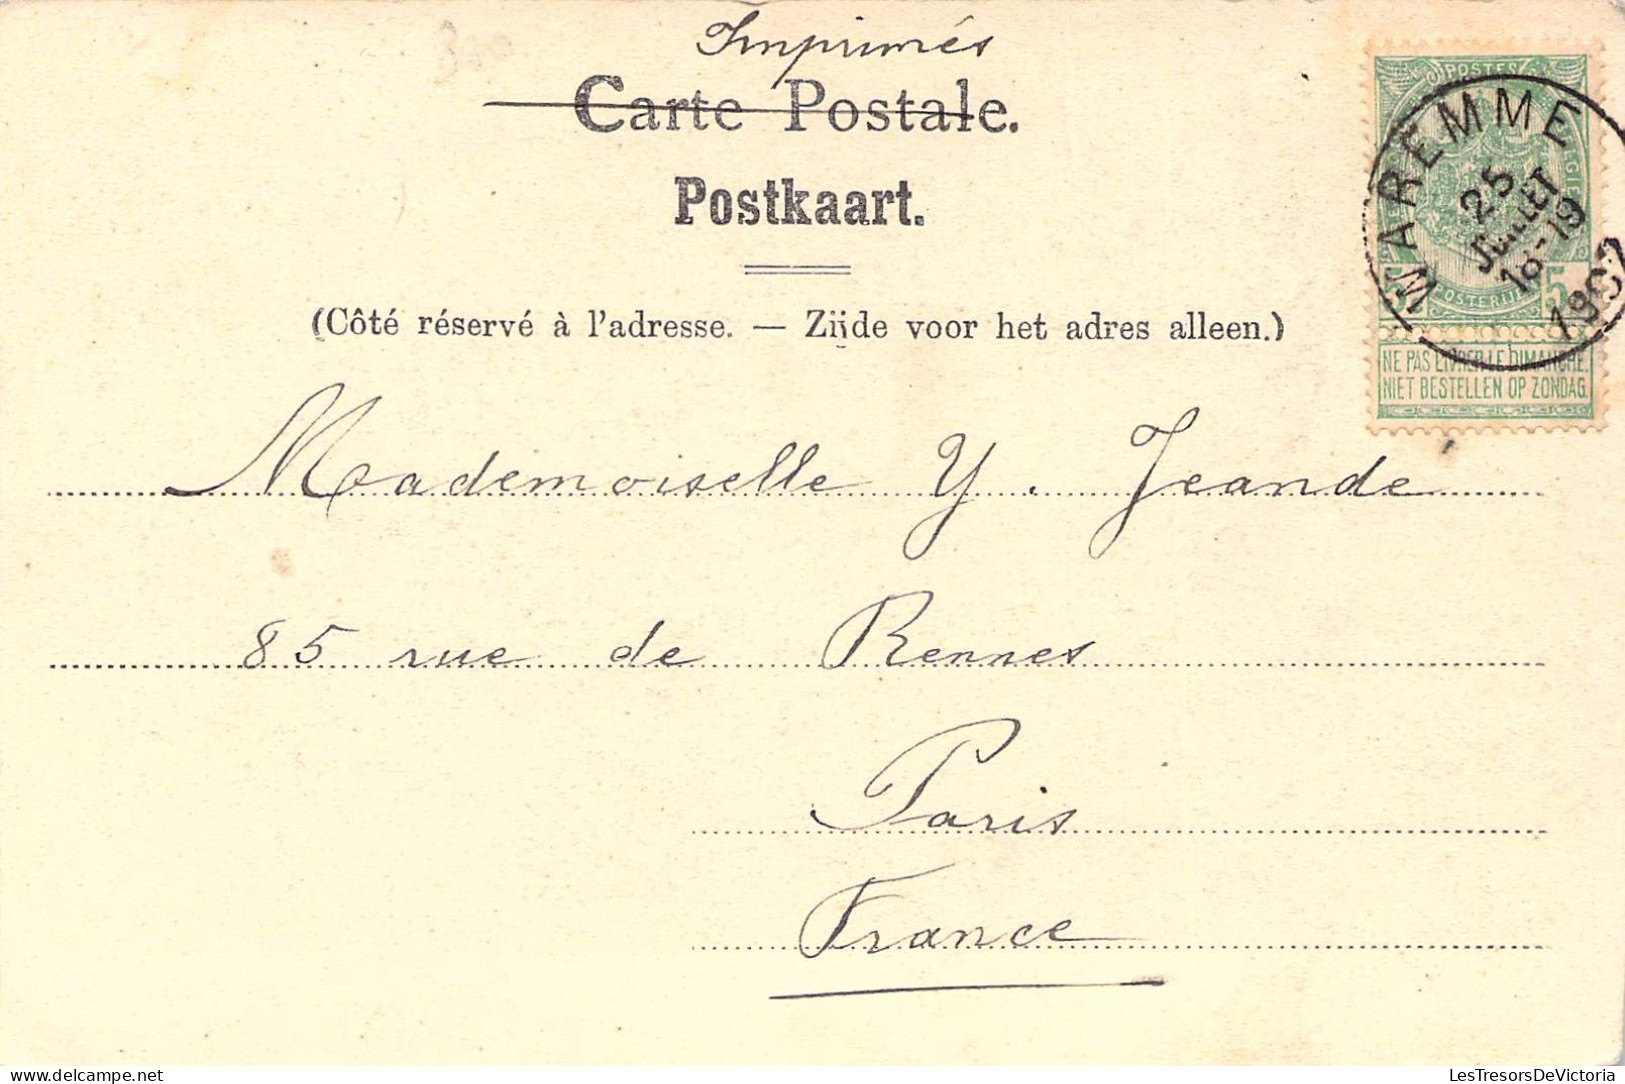 Imprimés
Carte Postale.
Postkaart.
(Côté réservé à l'adresse. — Zijde voor het adres alleen.)
POSTES
WAREMME
25
JUILLET
18-19
5
5
POSTERIJEN
NE PAS LIVRER LE DIMANCHE
NIET BESTELLEN OP ZONDAG
Mademoiselle Y. Jeande
85 rue de Rennes
Paris
France
LesTresorsDeVictoria